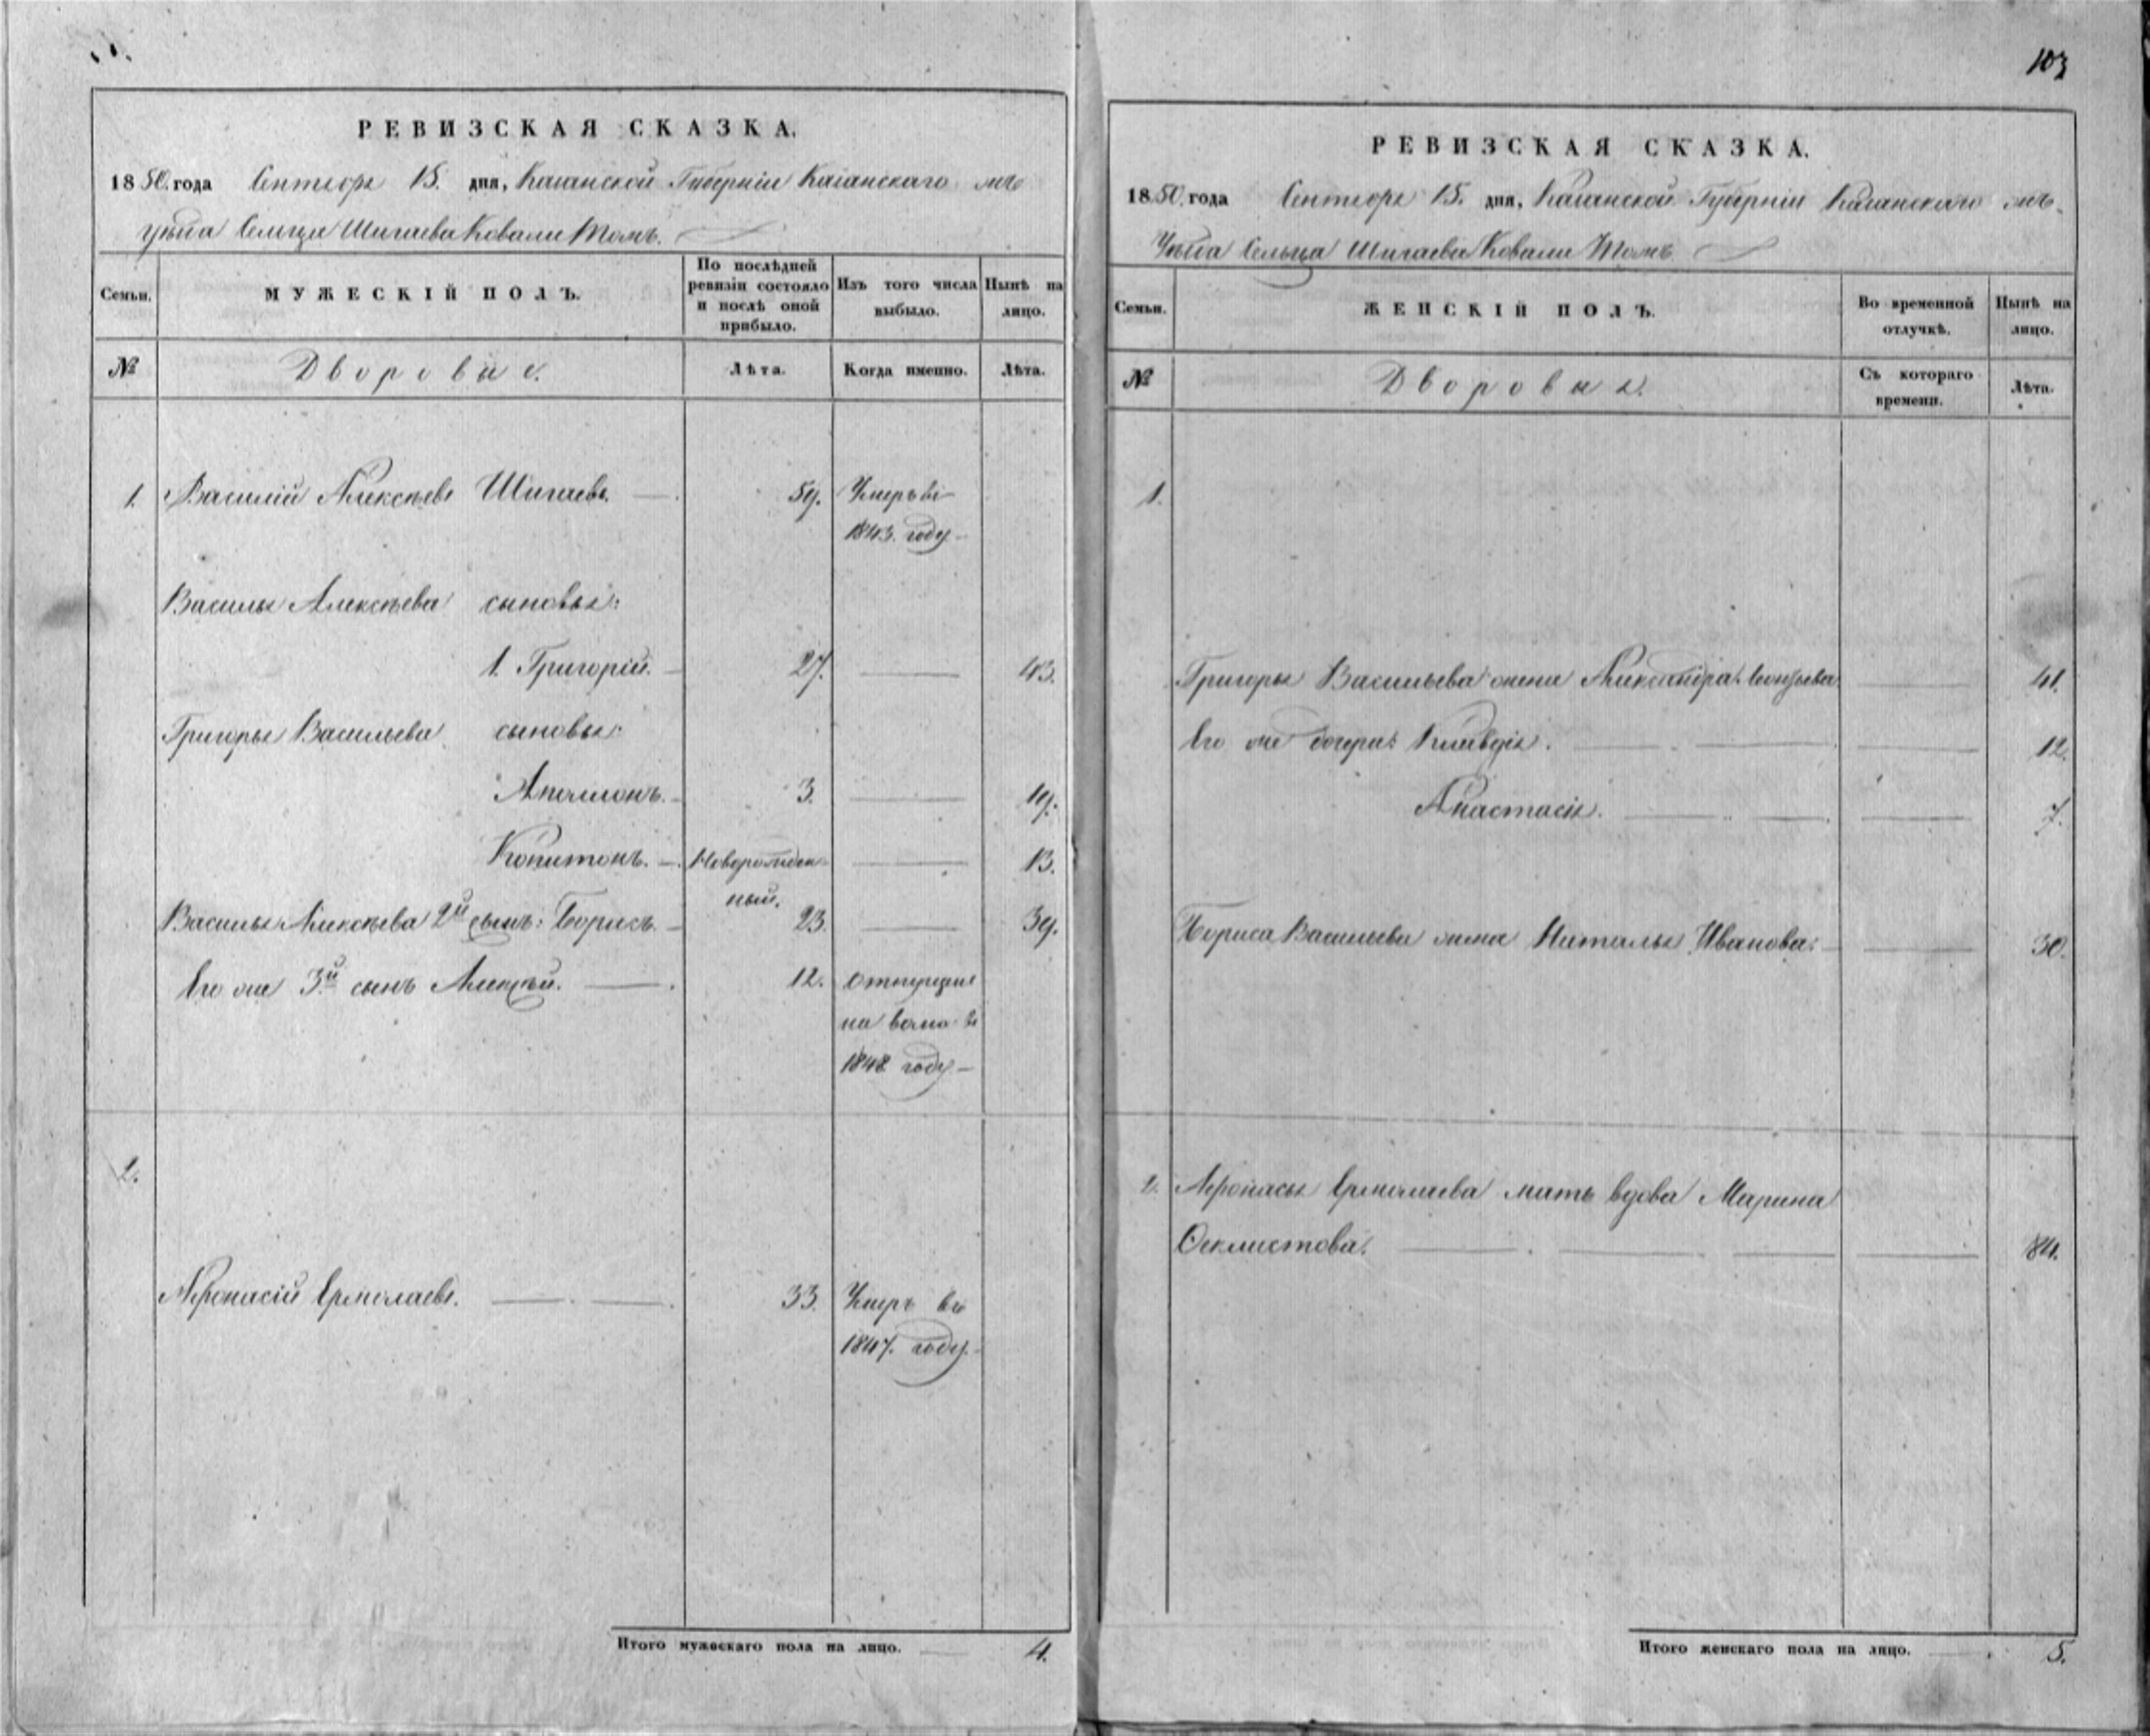 103
РЕВИЗСКАЯ СКАЗКА.
1850 года Сентября 15. дня, Казанской Губерніи Казанскаго
уѣзда Сельца Шигаева Ковали Тожъ.
Семьи.
МУЖЕСКІЙ ПОЛЪ.
По послѣдней ревизіи состояло и послѣ оной прибыло.
Изъ того числа выбыло.
Нынѣ на лицо.
№
Дворовые.
Лѣта.
Когда именно.
Лѣта.
1. Василій Алексѣевъ Шигаевъ. 59. Умеръ въ
1843. году.
Василья Алексѣева сыновья:
1. Григорій. 27. 43.
Григорья Васильева сыновья:
Аполлонъ. 3. 19.
Копитонъ. Новорожден- 13.
ный.
Василья Алексѣева 2й сынъ: Борисъ. 23. 39.
Его же 3й сынъ Алексѣй. 12. Отпущенъ
на волю въ
1848 году
2.
Афонасій Ермолаевъ. 33. Умеръ въ
1847. году.
Итого мужескаго пола на лицо. 4.
РЕВИЗСКАЯ СКАЗКА.
1850 года Сентября 15. дня, Казанской Губерніи Казанскаго
Уѣзда Сельца Шигаева Ковали Тожъ
Семьи.
ЖЕНСКІЙ ПОЛЪ.
Во временной отлучкѣ.
Нынѣ на лицо.
№
Дворовыя.
Съ котораго времени.
Лѣта.
1.
Григорья Васильева жена Александра 41.
Его же дочери: Клавдія. 12.
Анастасія. 7.
Бориса Васильева жена Наталья Иванова: 30.
2. Афонасья Ермолаева мать вдова Марина
Феклистова. 84.
Итого женскаго пола на лицо. 5.